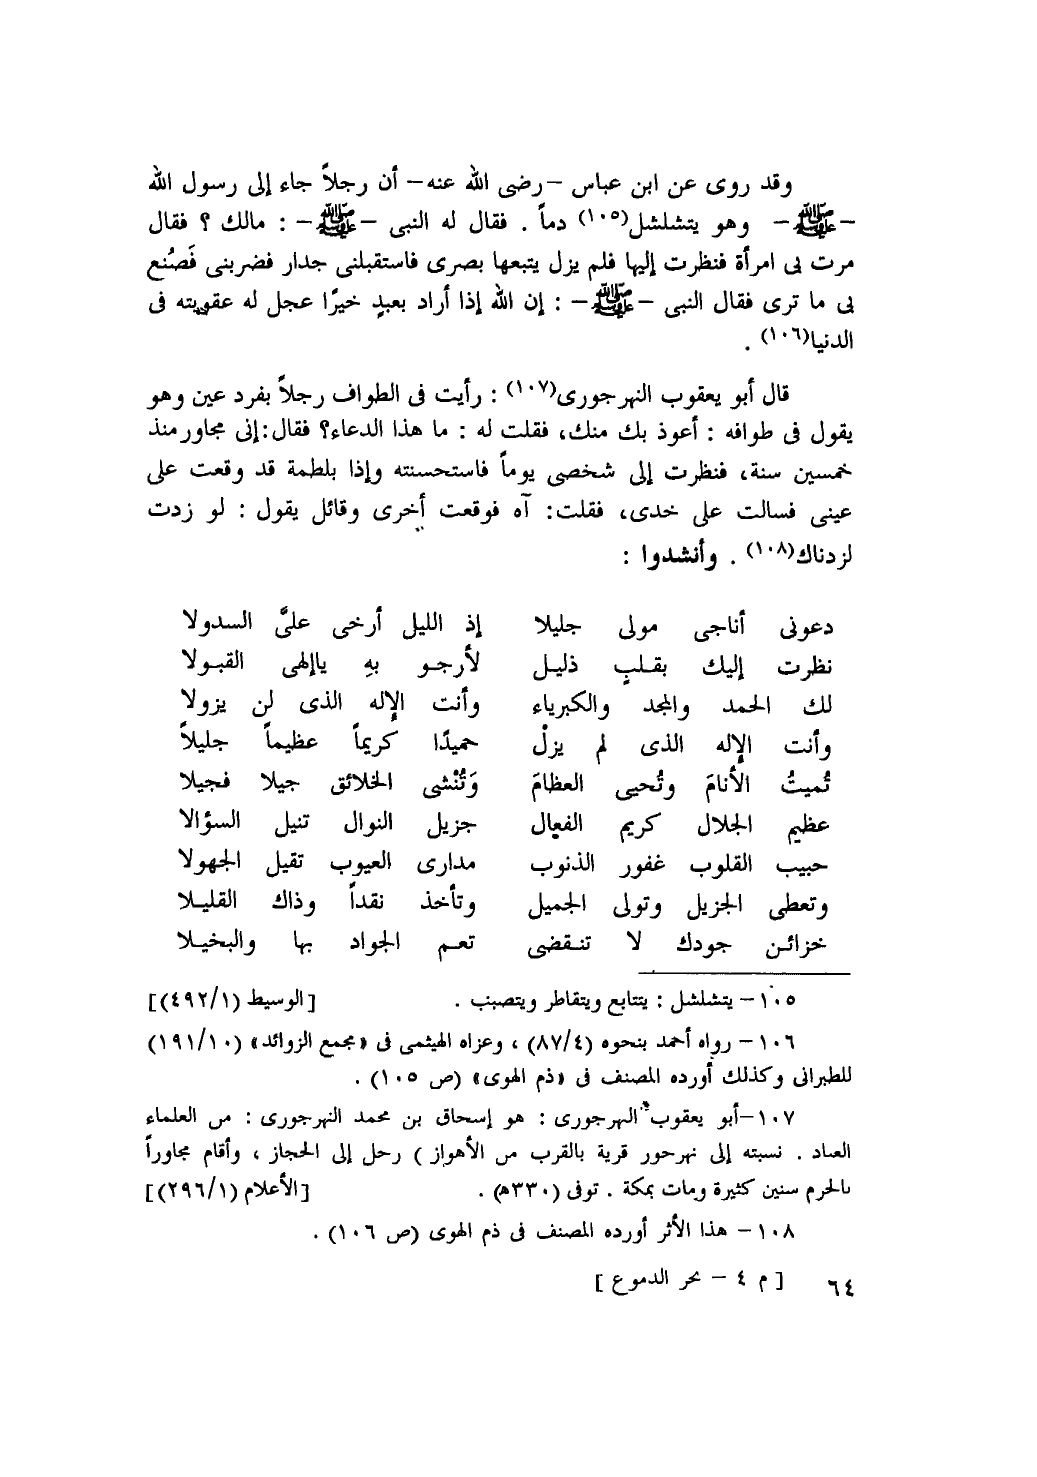 وقد روى عن ابن عباس –رضى الله عنه– أن رجلاً جاء إلى رسول الله
–ﷺ– وهو يتشلشل(١٠٥) دماً . فقال له النبى –ﷺ– : مالك ؟ فقال
مرت بى امرأة فنظرت إليها فلم يزل يتبعها بصرى فاستقبلنى جدار فضربنى فَصُنع
بى ما ترى فقال النبى –ﷺ– : إن الله إذا أراد بعبدٍ خيرًا عجل له عقوبته فى
الدنيا(١٠٦) .
قال أبو يعقوب النهرجورى(١٠٧) : رأيت فى الطواف رجلاً بفرد عين وهو
يقول فى طوافه : أعوذ بك منك، فقلت له : ما هذا الدعاء؟ فقال:إنى مجاور منذ
خمسين سنة، فنظرت إلى شخصى يوماً فاستحسنته وإذا بلطمة قد وقعت على
عينى فسالت على خدى، فقلت: آه فوقعت أخرى وقائل يقول : لو زدت
لزدناك(١٠٨) . وأنشدوا :
دعونى أناجى مولى جليلا إذ الليل أرخى علىَّ السدولا
نظرت إليك بقلبٍ ذليل لأرجو بهِ ياإلهى القبولا
لك الحمد والمجد والكبرياء وأنت الإله الذى لن يزولا
وأنت الإله الذى لم يزلْ حميدًا كريماً عظيماً جليلاً
تُميتُ الأنامَ وتُحيى العظامَ وَتُنْشى الخلائق جيلا فجيلا
عظيم الجلال كريم الفعال جزيل النوال تنيل السؤالا
حبيب القلوب غفور الذنوب مدارى العيوب تقيل الجهولا
وتعطى الجزيل وتولى الجميل وتأخذ نقداً وذاك القليلا
خزائن جودك لا تنقضى تعم الجواد بها والبخيلا
١٠٥– يتشلشل : يتتابع ويتقاطر ويتصبب . [الوسيط (٤٩٢/١)]
١٠٦– رواه أحمد بنحوه (٨٧/٤) ، وعزاه الهيثمى فى «مجمع الزوائد» (١٩١/١٠)
للطبرانى وكذلك أورده المصنف فى «ذم الهوى» (ص ١٠٥) .
١٠٧–أبو يعقوب النهرجورى : هو إسحاق بن محمد النهرجورى : من العلماء
العباد . نسبته إلى نهرجور قرية بالقرب من الأهواز ) رحل إلى الحجاز ، وأقام مجاوراً
بالحرم سنين كثيرة ومات بمكة . توفى (٣٣٠هـ) . [الأعلام (٢٩٦/١)]
١٠٨– هذا الأثر أورده المصنف فى ذم الهوى (ص ١٠٦) .
٦٤ [ م ٤ – بحر الدموع ]